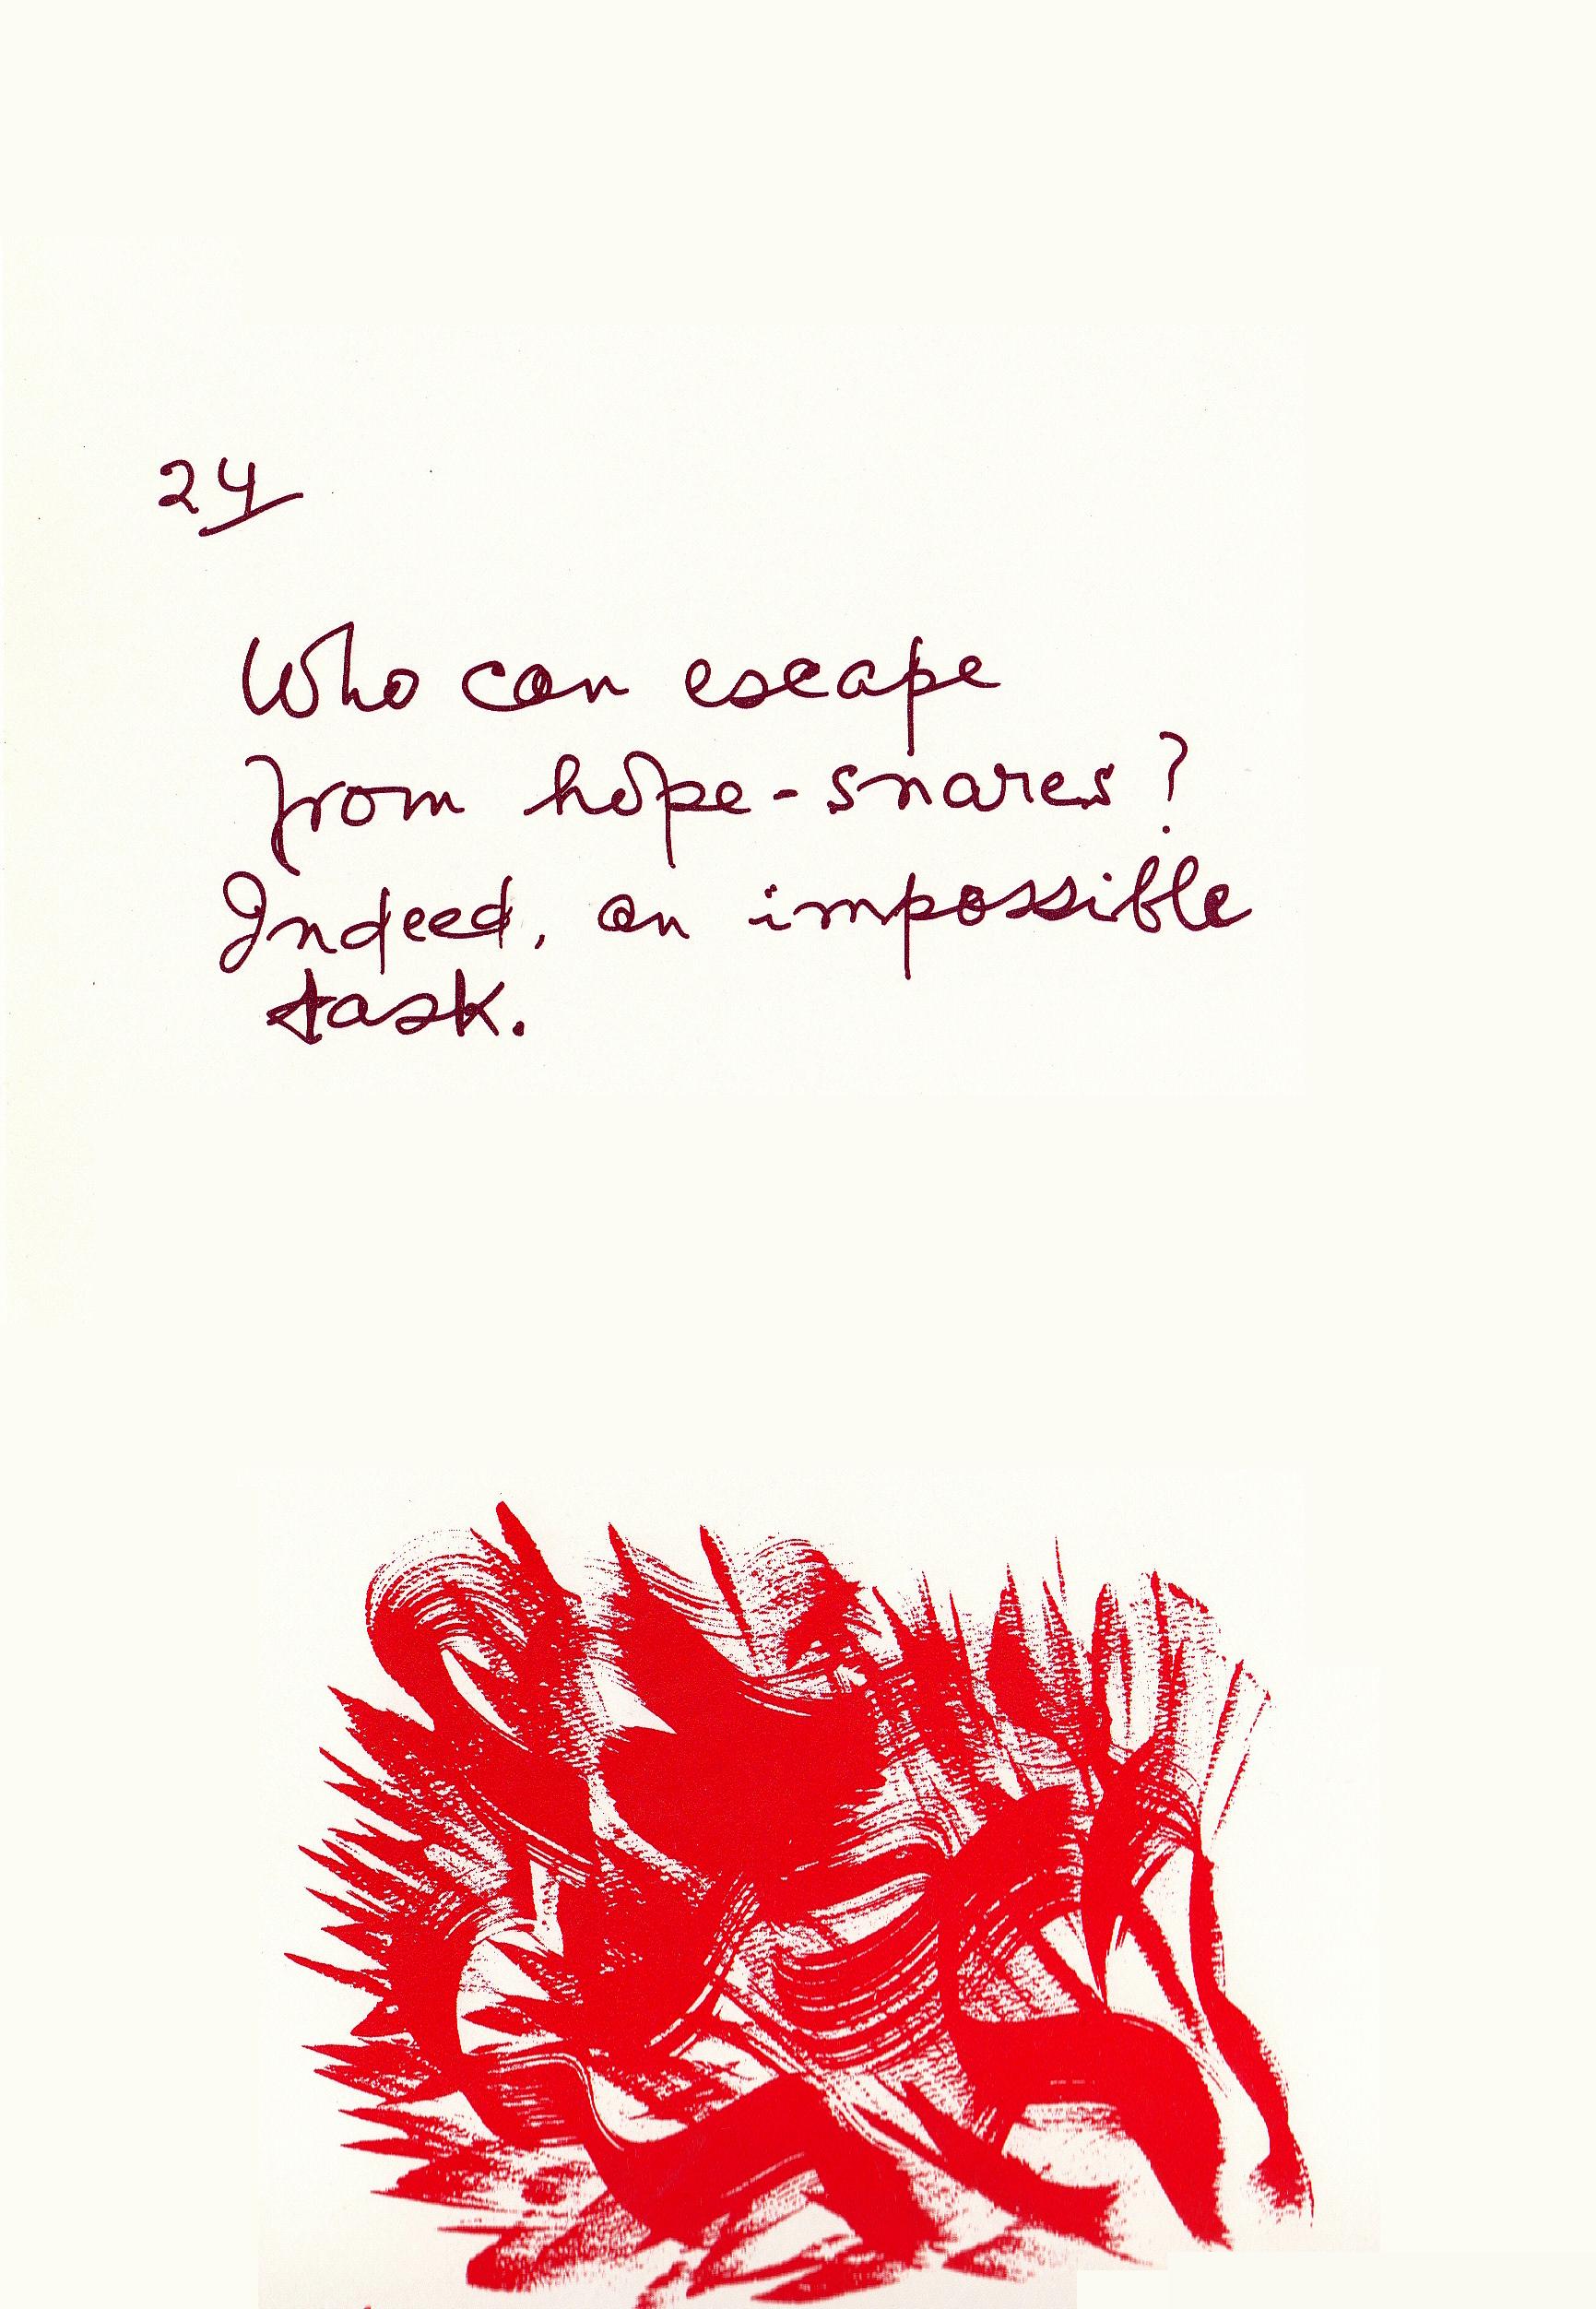 24
Who can escape
from hope-snares?
Indeed, an impossible
task.